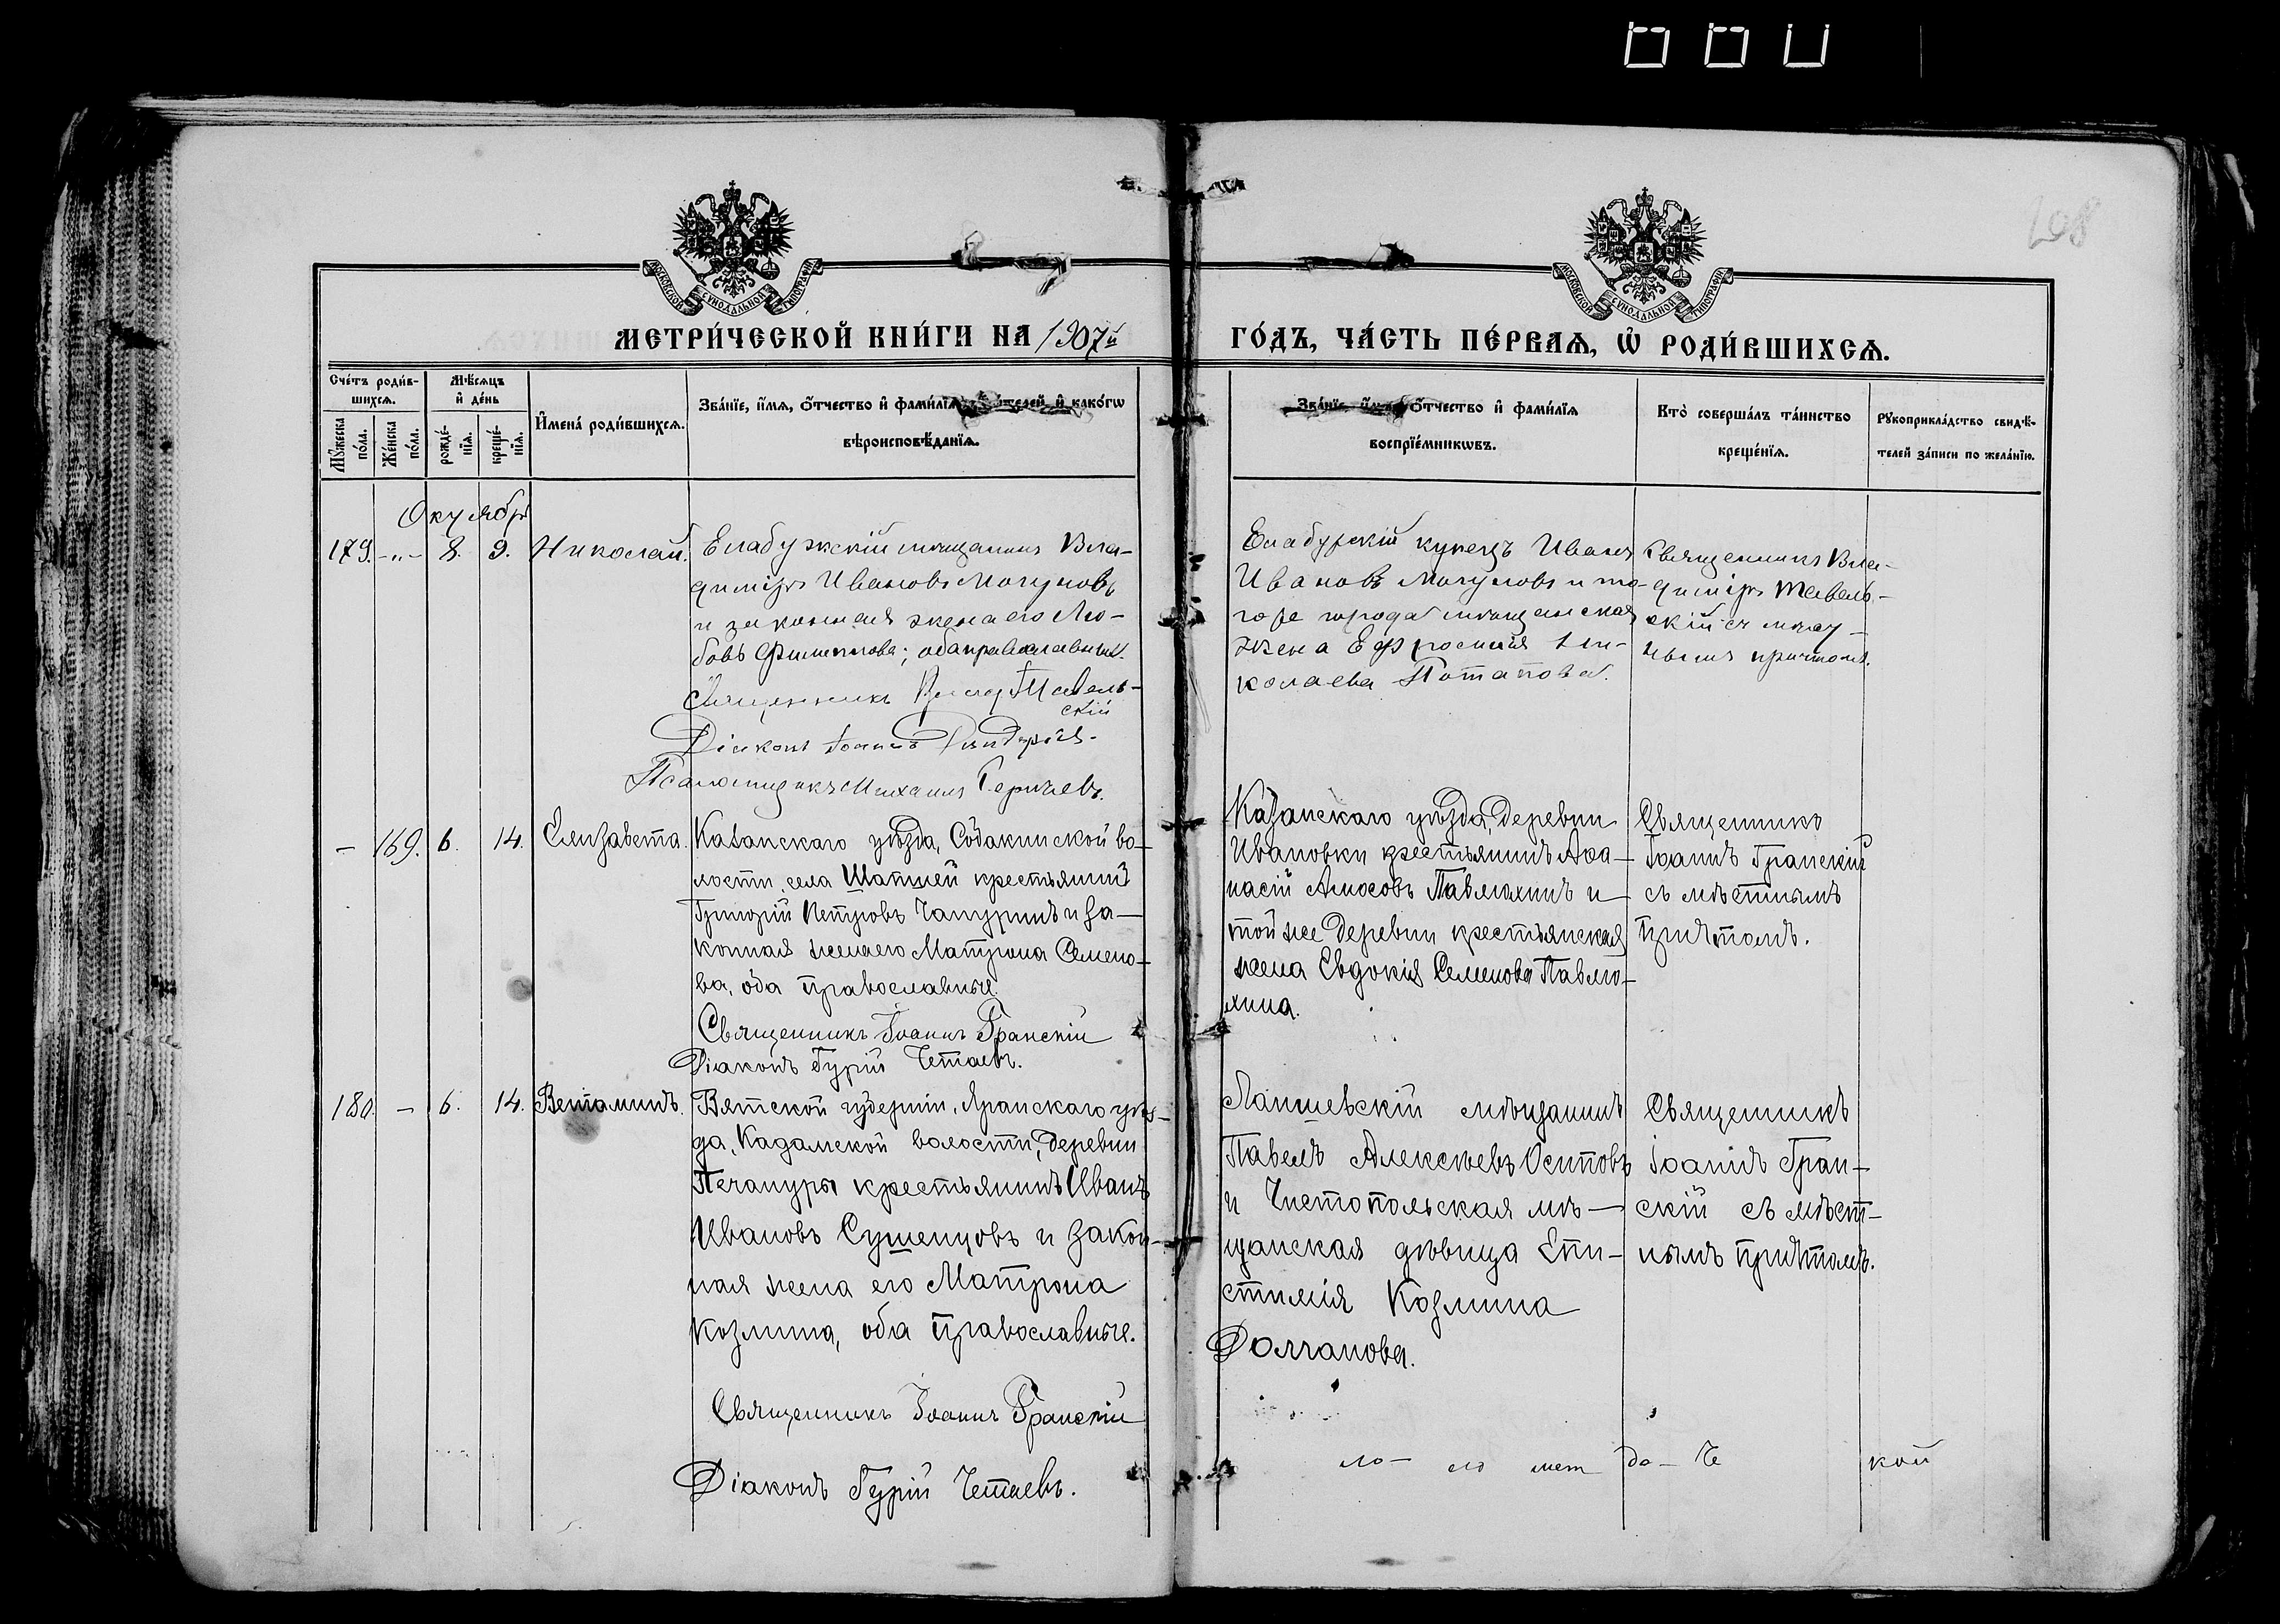 208
МОСКОВСКОЙ СѴНОДАЛЬНОЙ ТИПОГРАФІИ
МОСКОВСКОЙ СѴНОДАЛЬНОЙ ТИПОГРАФІИ
МЕТРИ́ЧЕСКОЙ КНИ́ГИ НА 1907й
ГО́ДЪ, ЧА́СТЬ ПЕ́РВАѦ, Ѡ҆ РОДИ́ВШИХСѦ.
Сче́тъ роди́в-
шихсѧ.
Мѣ́сѧцъ
и҆ де́нь
Мꙋ́жеска по́ла.
Же́нска по́ла.
рожде́-
нїѧ.
креще́-
нїѧ.
И҆мена̀ роди́вшихсѧ.
Зва́нїе, и҆́мѧ, ѻ҆́тчество и҆ фами́лїѧ роди́телей, и҆ како́гѡ
вѣроисповѣ́данїѧ.
Зва́нїе, и҆́мѧ, ѻ҆́тчество и҆ фами́лїѧ
воспрїе́мникѡвъ.
Кто̀ соверша́лъ та́инство
креще́нїѧ.
Рꙋкоприкла́дство свидѣ́-
телей за́писи по жела́нїю.
Октября
179. -„- 8. 9. Николай.
Елабужскій мѣщанинъ Вла-
димiръ Ивановъ Могуновъ
и законная жена его Лю-
бовь Филиппова; оба православные.
Священникъ Влад. Тавель-
скій
Діаконъ Іоаннъ
Псаломщикъ Михаилъ Сергѣевъ.
Елабужскій купецъ Иванъ
Ивановъ Могуновъ и то-
го же города мѣщанская
жена Ефросинія Ни-
колаева Потапова.
Священникъ Вла-
димiръ Тавель-
скій съ мѣст-
нымъ причтомъ.
- 169. 6. 14. Елизавета.
Казанскаго уѣзда, Собакинской во-
лости, села Шапшей крестьянинъ
Григорій Петровъ Чапуринъ и за-
конная жена его Матрона Семено-
ва, оба православные.
Священникъ Іоаннъ Гранскій
Діаконъ Гурій Четаевъ.
Казанскаго уѣзда, деревни
Ивановки крестьянинъ Аѳа-
насій Амосовъ Павлюхинъ и
той же деревни крестьянская
жена Евдокія Семенова Павлю-
хина.
Священникъ
Іоаннъ Гранскій
съ мѣстнымъ
причтомъ.
180. - 6. 14. Веніаминъ.
Вятской губерніи, Яранскаго уѣз-
да, Кадамской волости, деревни
Печануры крестьянинъ Иванъ
Ивановъ Сушенцовъ и закон-
ная жена его Матрона
Козмина, оба православные.
Священникъ Іоаннъ Гранскій
Діаконъ Гурій Четаевъ.
Лаишевскій мѣщанинъ
Павелъ Алексѣевъ Осиповъ
и Чистопольская мѣ-
щанская дѣвица Епи-
стимія Козмина
Долганова.
Священникъ
Іоаннъ Гран-
скій съ мѣст-
нымъ причтомъ.
кой